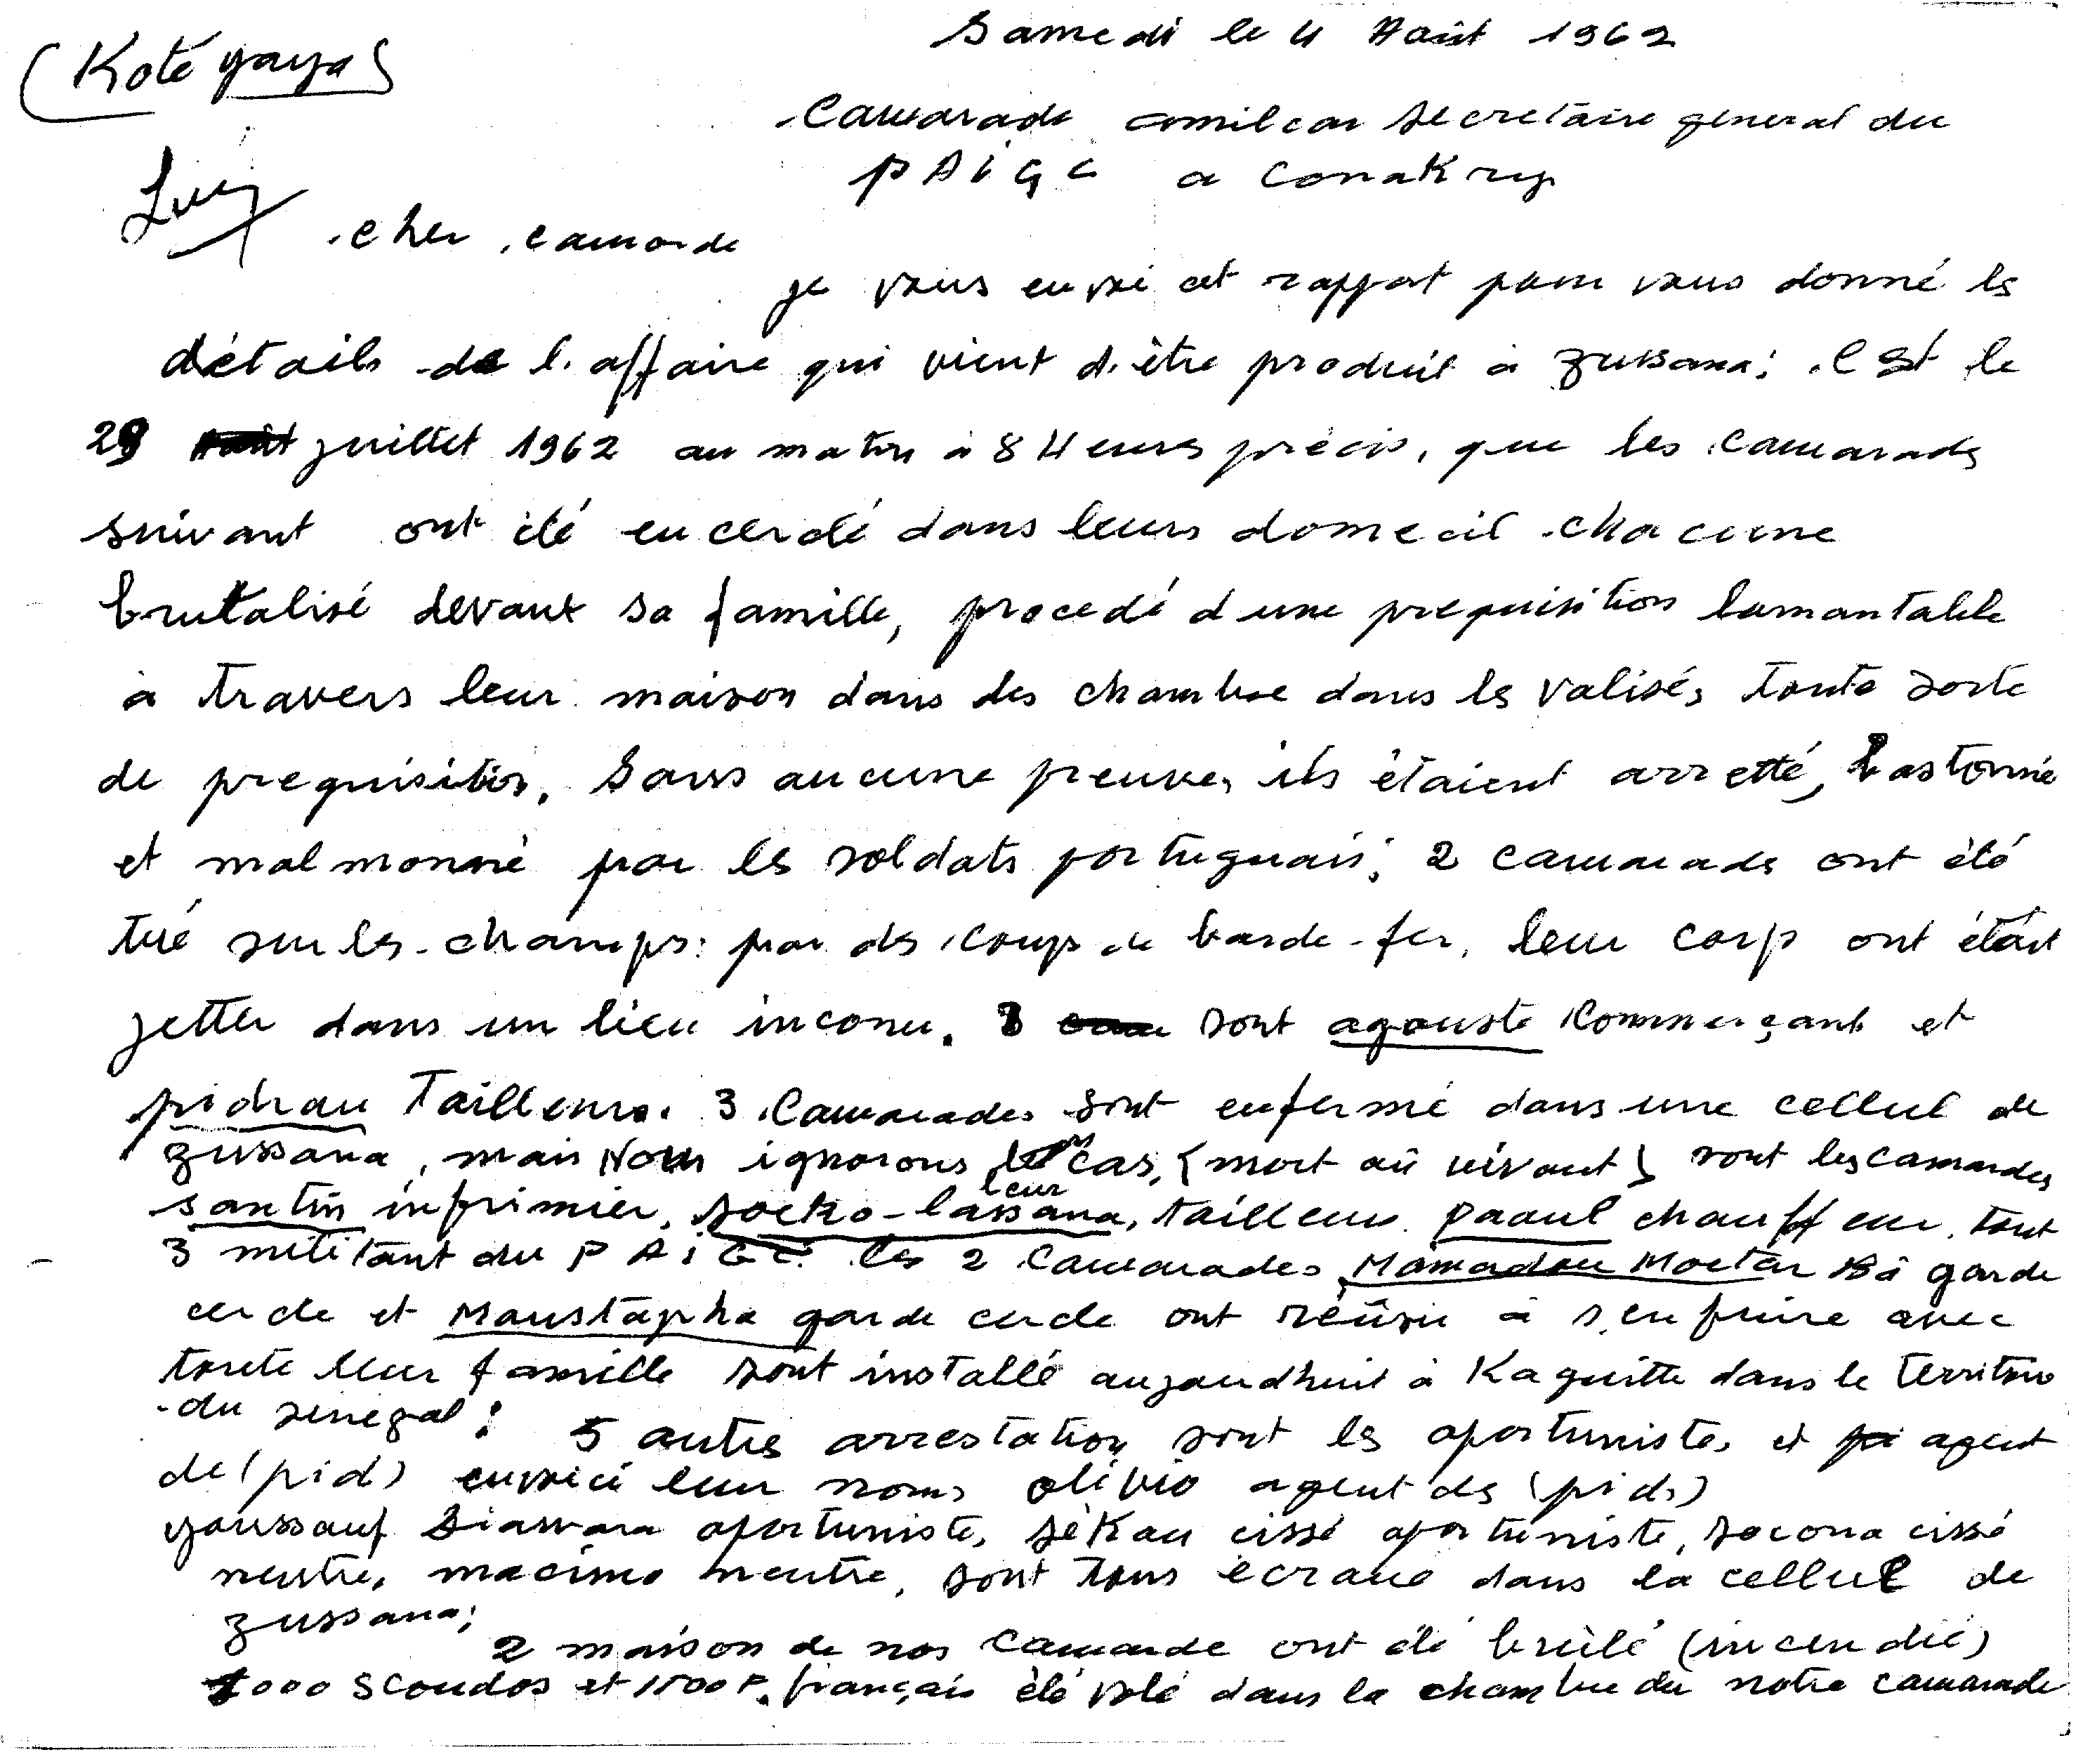 Samedi le 4 Août 1962
(Koté yaya)
Camarade amilcar secretaire general du
PAiGC a Conakry
Luy
cher camarde
je vous envoi cet rapport pour vous donné ls
détails de l'affaire qui vient d'être produit à zussana; C'est le
29 juillet 1962 au matin à 8 Heures précis, que les camarads
suivant ont été encerclé dans leurs domecil chacune
brutalisé devant sa famille, procedé d'une prequisition lamantable
à travers leur maison dans les chambre dans ls valisés toute sorte
de prequisition. Sans aucune preuve, ils étaient arretté, bastonné
et malmonné par ls soldats portuguais; 2 camarads ont été
tué sur ls champs: par ds coups de barde-fer, leur corp ont étaít
jetter dans un lieu inconu. sont agouste Kommerçant et
pidrau Tailleurs. 3 Camarades sont enfermé dans une cellul de
zussana, mais Nous ignorons leur cas, (mort où vivant) sont les camarades
santin infirmier, socko-lassana, tailleur. Paoul chauffeur, tout
3 militant du PAiGC. les 2 Camarades Mamadou Moctar Bâ garde
cercle et Moustapha garde cercle ont réüssi à s'enfuire avec
toute leur famille sont installé aujourdhuit à Kaguitte dans le Territoire
du senegal; 5 autres arrestation sont ls oportuniste, et agent
de (pid) envoici leur noms olivio agent ds (pid)
youssouf Diawara oportuniste, sékou cissé oportuniste, socona cissé
neutre, macimo neutre, sont tous écroué dans la cellule de
zussana;
2 maison de nos camarde ont été brûlé (incendié)
1000 scoudos et 1500 F. français été volé dans la chambre du notre camarade